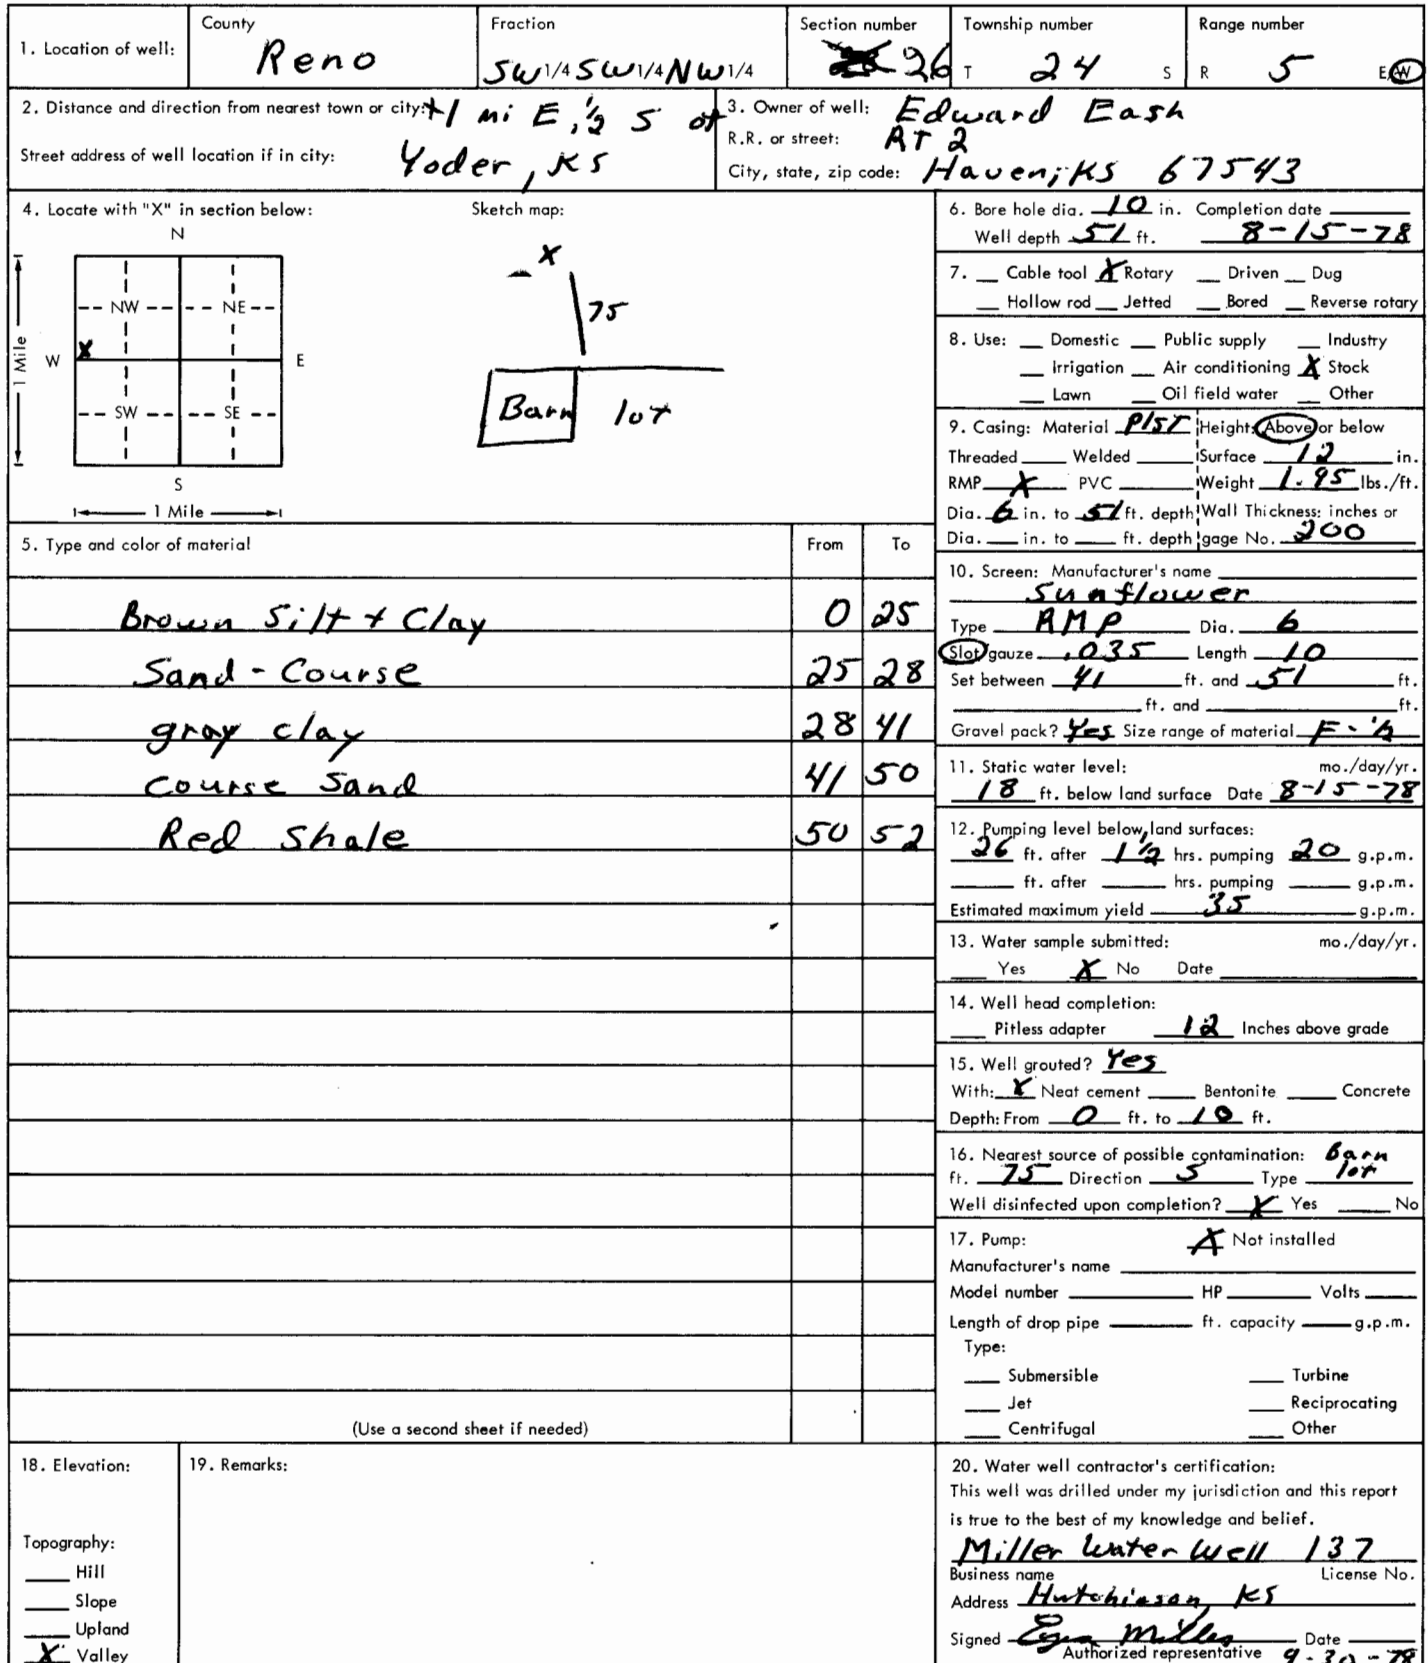 1. Location of well: County Reno Fraction SW 1/4 SW 1/4 NW 1/4 Section number 26 Township number T 24 S Range number R 5 E/W
2. Distance and direction from nearest town or city: +1 mi E, 1/2 S of
Street address of well location if in city: Yoder, KS
3. Owner of well: Edward Eash
R.R. or street: RT 2
City, state, zip code: Haven, KS 67543
4. Locate with "X" in section below:
N
NW NE
W X E
SW SE
S
1 Mile
1 Mile
Sketch map:
X
75
Barn lot
5. Type and color of material From To
Brown Silt + Clay 0 25
Sand - Course 25 28
gray clay 28 41
Course Sand 41 50
Red Shale 50 52
(Use a second sheet if needed)
6. Bore hole dia. 10 in. Completion date
Well depth 51 ft. 8-15-78
7. Cable tool X Rotary Driven Dug
Hollow rod Jetted Bored Reverse rotary
8. Use: Domestic Public supply Industry
Irrigation Air conditioning X Stock
Lawn Oil field water Other
9. Casing: Material PlST Height: Above or below
Threaded Welded Surface 12 in.
RMP X PVC Weight 1.95 lbs./ft.
Dia. 6 in. to 51 ft. depth Wall Thickness: inches or
Dia. in. to ft. depth gage No. 200
10. Screen: Manufacturer's name
Sunflower
Type RMP Dia. 6
Slot/gauze .035 Length 10
Set between 41 ft. and 51 ft.
ft. and ft.
Gravel pack? Yes Size range of material
11. Static water level: mo./day/yr.
18 ft. below land surface Date 8-15-78
12. Pumping level below land surfaces:
26 ft. after 1 1/2 hrs. pumping 20 g.p.m.
ft. after hrs. pumping g.p.m.
Estimated maximum yield 35 g.p.m.
13. Water sample submitted: mo./day/yr.
Yes X No Date
14. Well head completion:
Pitless adapter 12 Inches above grade
15. Well grouted? Yes
With: X Neat cement Bentonite Concrete
Depth: From 0 ft. to 10 ft.
16. Nearest source of possible contamination: Barn
ft. 75 Direction S Type lot
Well disinfected upon completion? X Yes No
17. Pump: X Not installed
Manufacturer's name
Model number HP Volts
Length of drop pipe ft. capacity g.p.m.
Type:
Submersible Turbine
Jet Reciprocating
Centrifugal Other
18. Elevation:
Topography:
Hill
Slope
Upland
X Valley
19. Remarks:
20. Water well contractor's certification:
This well was drilled under my jurisdiction and this report
is true to the best of my knowledge and belief.
Miller Water Well 137
Business name License No.
Address Hutchinson, KS
Signed Miller Date
Authorized representative 9-30-78